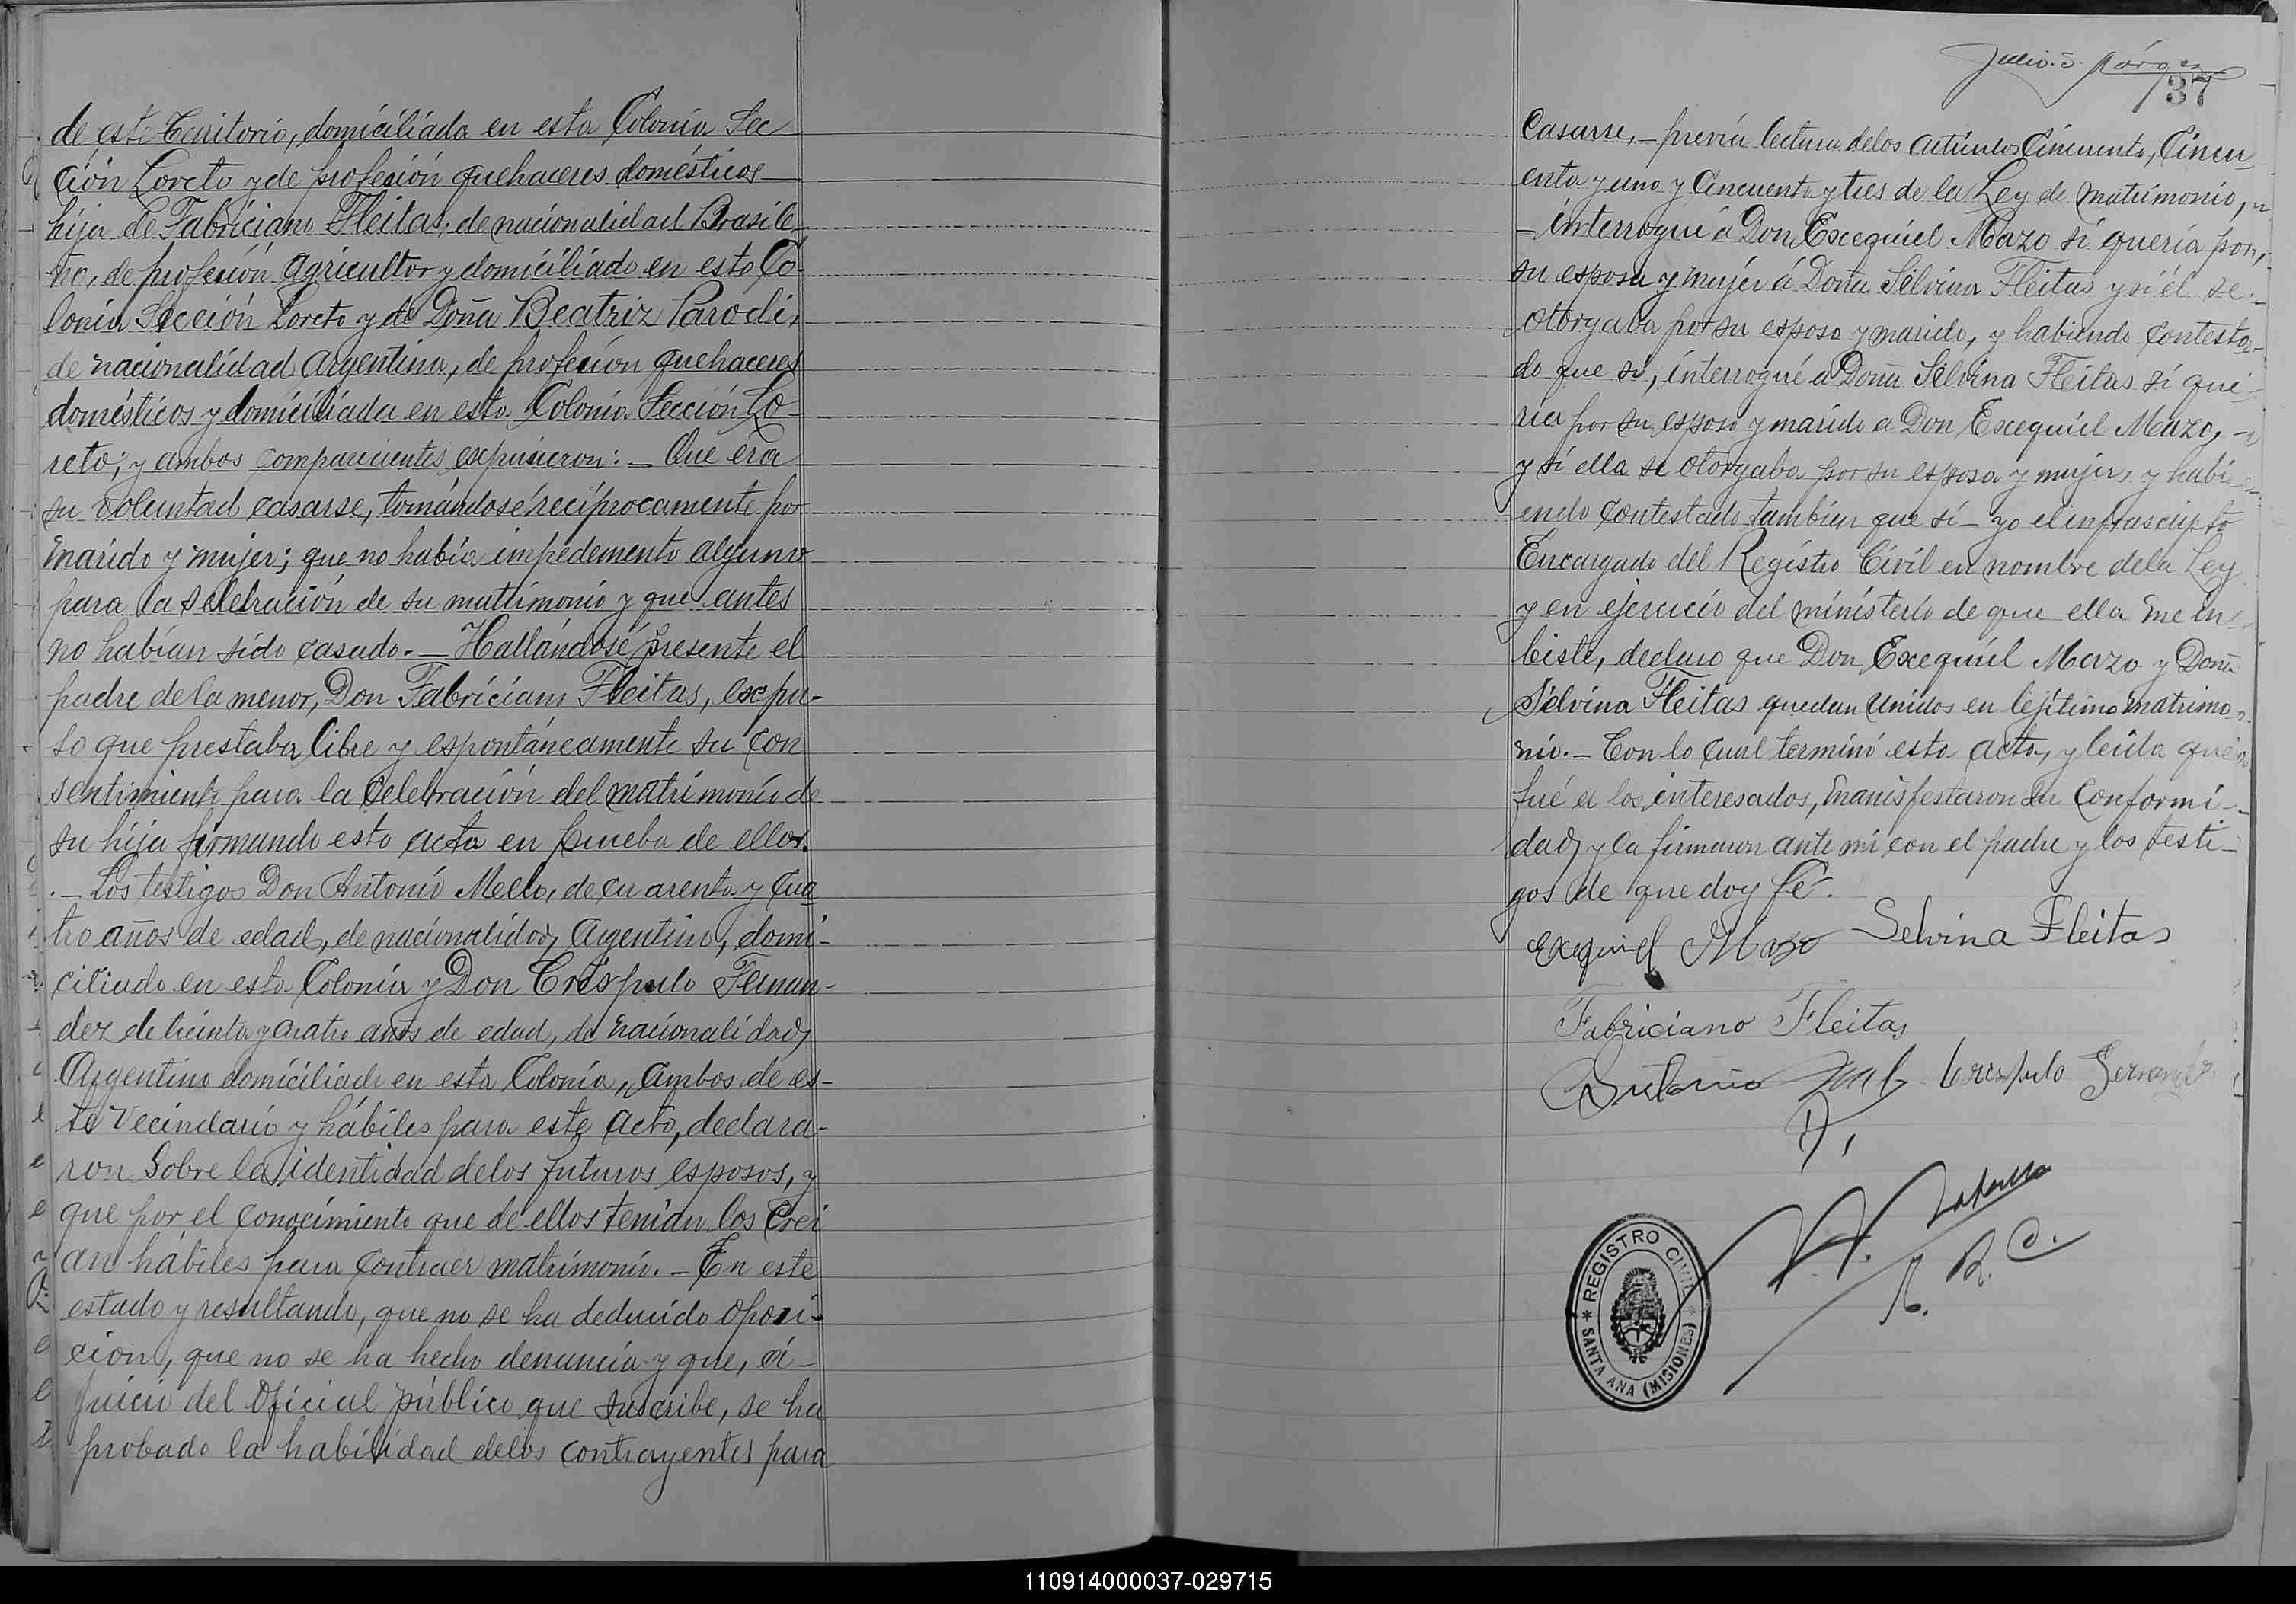 de este Territorio, domiciliada en esta Colonia Sec
ción Loreto y de profesión quehaceres domésticos
hija de Fabriciano Fleitas, de nacionalidad Brasile-
ño, de profesión agricultor y domiciliado en esta Co-
lonia Sección Loreto y de Doña Beatriz Parodi,
de nacionalidad Argentina, de profesion quehaceres
domésticos y domiciliada en esta Colonia Sección Lo-
reto; y ambos comparecientes expusieron: - Que era
su voluntad casarse, tomándosé recíprocamente por
marido y mujer; que no había impedemento alguno
para la selebración de su matrimonio y que antes
no habían sido casado. - Hallándosé presente el
padre de la menor, Don Fabriciano Fleitas, expu-
so que prestaba libre y espontáneamente su con
sentimiento para la Celebración del matrimonio de
su hija firmando esta acta en prueba de ellos.
. - Los testigos Don Antonio Mello, de cuarenta y cua
tro años de edad, de nacionalidad Argentino, domi-
ciliado en esta Colonia y Don Críspulo Fernan-
dez de treinta y cuatro años de edad, de nacionalidad
Argentino domiciliado en esta Colonia, ambos de es-
te vecindario y hábiles para este acto, declara-
ron sobre la identidad delos futuros esposos, y
que por el conocimiento que de ellos tenían los crei
an hábiles para contraer matrimonio. - En este
estado y resultando, que no se ha deducido oposi-
ción, que no se ha hecho denuncia y que, á
juicio del Oficial público que suscribe, se ha
probado la habilidad delos contrayentes para
37
Casarse, - previa lectura delos artículos Cincuenta, Cincu
enta y uno y Cincuenta y tres de la Ley de matrimonio,
- interrogué á Don Excequiel Mazo si quería por
su esposa y mujer á Doña Silvina Fleitas y si él se
otorgaba por su esposo y marido, y habiendo contesta-
do que si, interrogué a Doña Silvina Fleitas si que-
ria por su esposo y marido a Don Excequiel Mazo, -
y si ella se otorgaba por su esposa y mujer, y habi-
endo contestado tambien que sí - yo el infrascripto
Encargado del Registro Civil en nombre dela Ley
y en ejercicio del ministerio de que ella me in-
biste, declaro que Don Excequiel Mazo y Doña
Silvina Fleitas quedan unidos en lejítimo matrimo-
nio. - Con lo cual terminó esta acta, y leída que
fué a los interesados, manisfestaron su conformi-
dad y la firmaron ante mi con el padre y los testi-
gos de que doy fé.
Exequiel Mazo Selvina Fleitas
Fabriciano Fleitas
Antonio Crispulo Fernandez
E. R. C.
* REGISTRO CIVIL *
SANTA ANA (MISIONES)
110914000037-029715